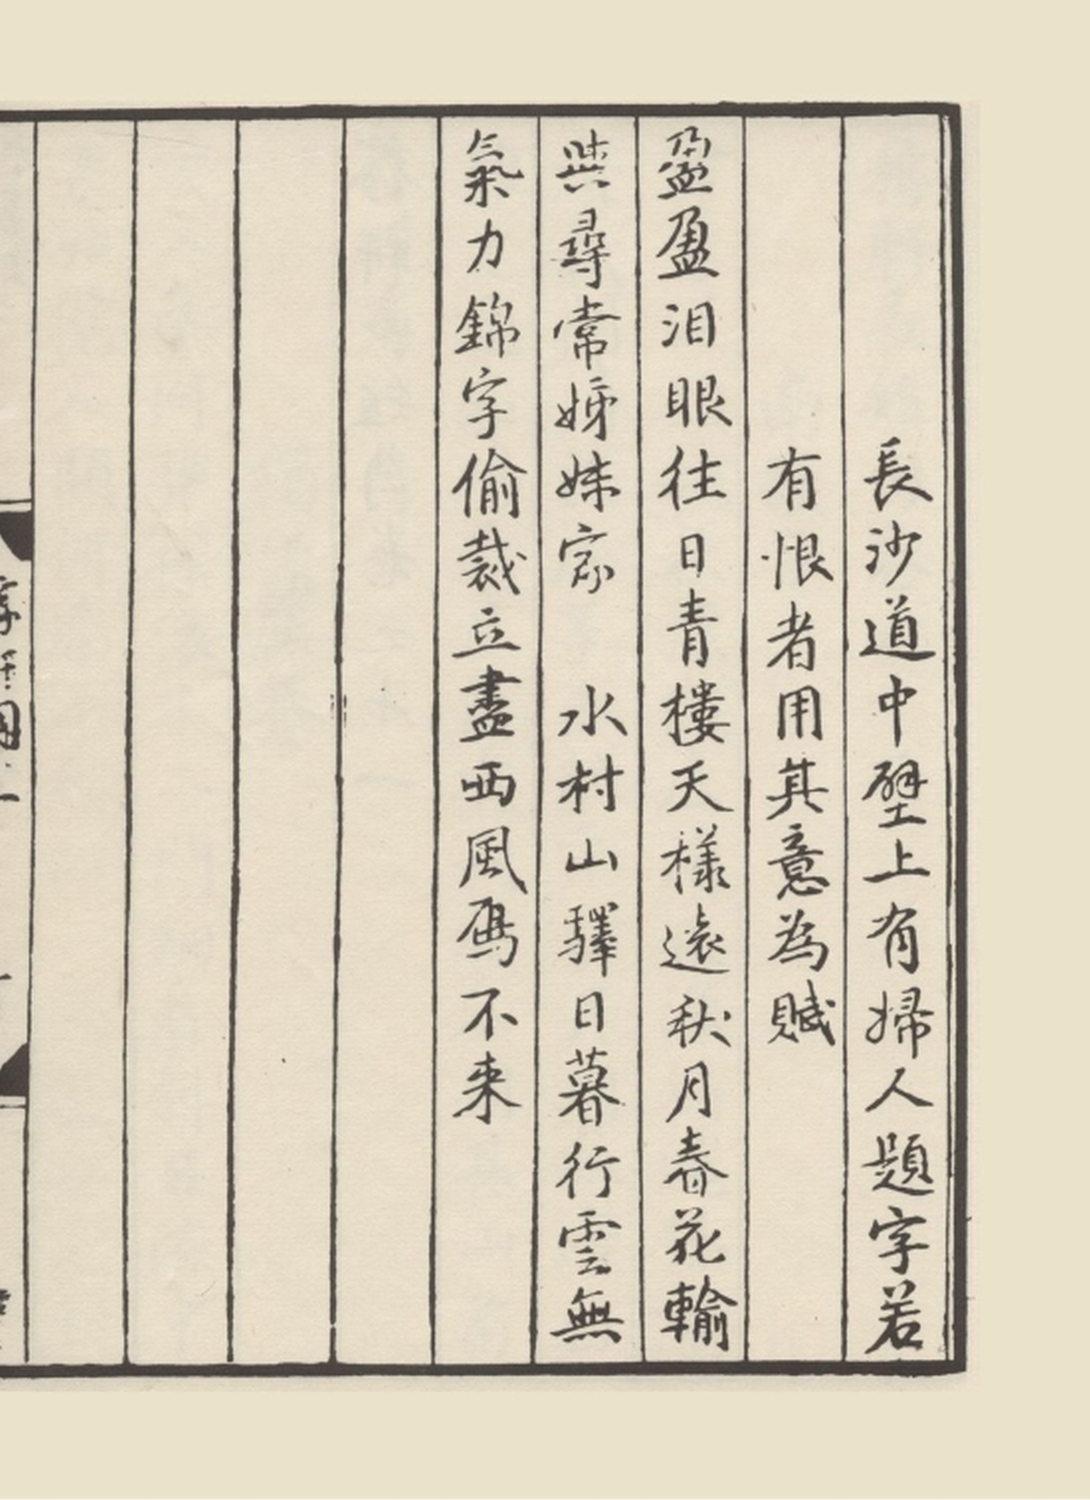 長沙道中壁上有婦人題字若
有恨者用其意為賦
盈盈泪眼往日青樓天樣遠秋月春花輸
與尋常姊妹家　水村山驛日暮行雲無
氣力錦字偷裁立盡西風鴈不来